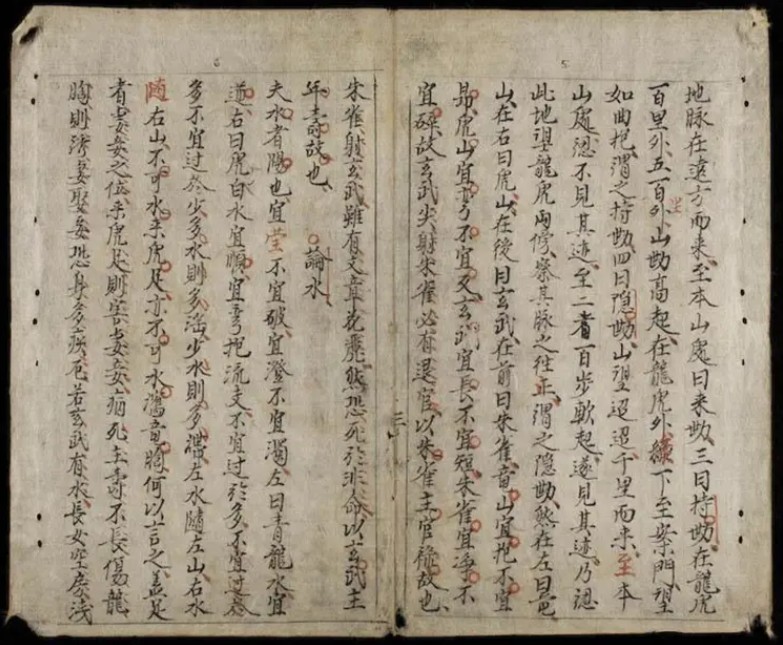 地脉在遠方而來至本山處曰來勢三曰持勢在龍虎
百里外五百外山勢高起在龍虎外纏下至案門望
如曲抱謂之持勢四曰隱勢山望迢迢千里而來至本
山處隱不見其迹至二者百步軟起遂見其迹乃認
此地望龍虎兩傍察其脉之徃正謂之隱勢然在左曰
山在右曰虎山在後曰玄武在前曰朱雀音山宜抱不宜
昂虎山宜弓不宜玄武宜長不宜短朱雀宜淨不
宜碎故玄武尖射朱雀必有退官以朱雀主官祿故也
朱雀射玄武雖有文章花麗然恐死於非命以玄武主
年壽故也 論水
夫水者陽也宜瑩不宜破宜澄不宜濁左曰青龍水宜
右曰虎白水宜順宜弯抱流支不宜過於多不宜過於
多不宜過於少多水則多滛少水則多滯左水隨左山右水
随右山不可水乘虎足亦不可水濡音膓何以言之盖足
者妻妾之位乘虎足則害妻妾病死主壽不長傷龍
胸則滯妻娶妾恐身多疾厄若玄武有水長女空房浅
三